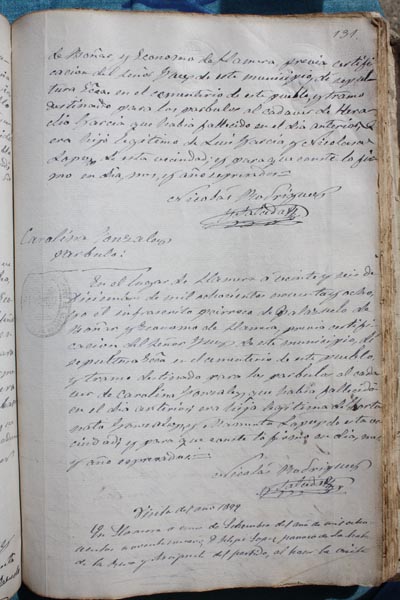 131.
de Boñar, y Economo de Llamera, previa certifi
cacion del Señor Juez de este municipio, de sepul
tura Ecca en el cementerio de este pueblo, y tramo
destinado para los parbulos al cadaver de Hera
clio Garcia que habia fallecido en el dia anterior, &
era hijo legitimo de Luis Garcia y Nicolasa
Lopez de esta vecindad; y para que conste lo fir
mo en dia, mes y año espresados
Nicolás Rodriguez
Tascón
Carolina Gonzalez
parbula:
En el lugar de Llamera a veinte y seis de
Diciembre de mil ochocientos noventa y ocho,
yo el infrascrito párroco de
Boñar y Economo de Llamera, previa certifi
cacion del Señor Juez de este municipio, di
sepultura Ecca en el cementerio de este pueblo,
y tramo destinado para los parbulos al cada
ver de Carolina Gonzalez, que habia fallecido
en el dia anterior; era hija legitima de Fortu
nato Gonzalez, y Lopez de esta ve
cindad; y para que conste lo firmo en dia, mes
y año espresados.
Nicolás Rodriguez
Visita del año 1899
En Llamera a de Setiembre del año de mil ocho
cientos noventa nueve, D. Felipe Lopez parroco de
de la y Arcipreste del partido, al hacer la visita